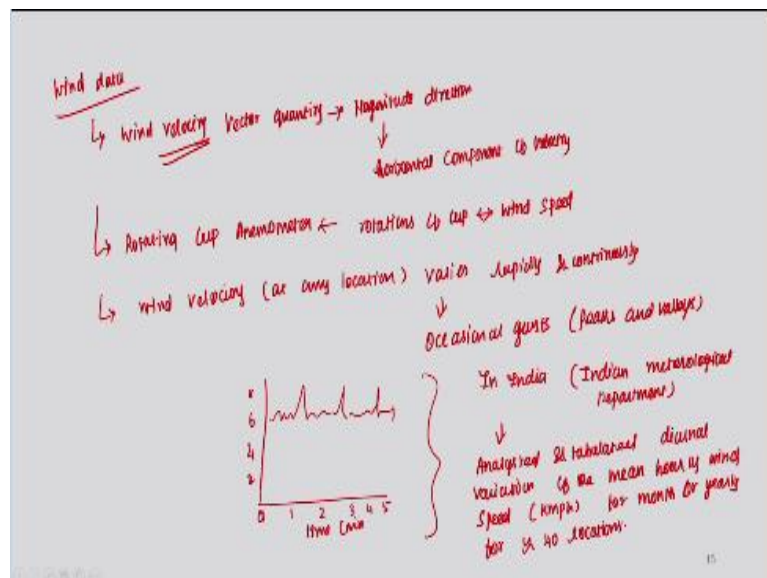 Wind data
↳ Wind velocity Vector quantity → Magnitude direction
↓
horizontal Component of velocity
↳ Rotating Cup Anemometer ← rotations of cup ↔ wind speed
↳ Wind velocity (at any location) varies rapidly & continuously
↓
Occasional gusts (Peaks and valleys)
In India (Indian meterological
Department)
↓
Analysed & tabulated diurnal
variation of the mean hourly wind
Speed (kmph) for month or yearly
for 40 locations.
8
6
4
2
0 1 2 3 4 5
time (min
15